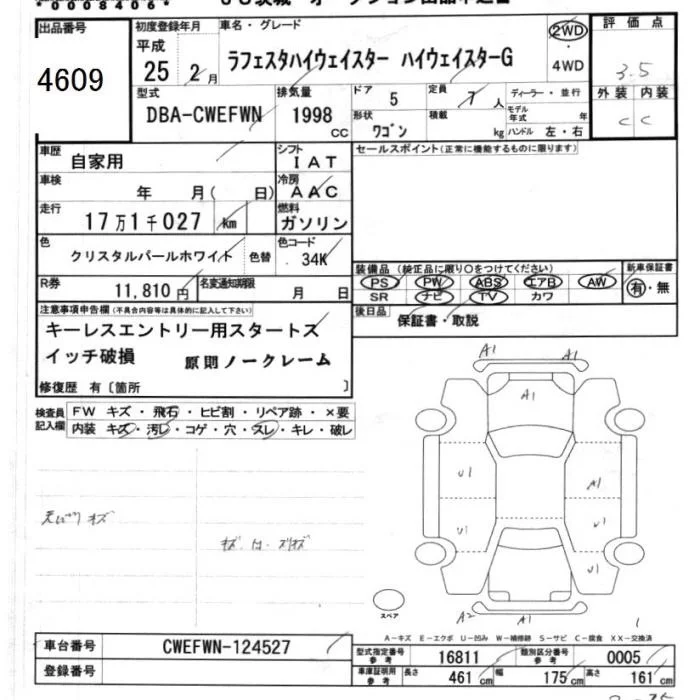 *0008406*
出品番号
4609
初度登録年月
平成
25 2 月
車名・グレード
ラフェスタハイウェイスター ハイウェイスターG
2WD
・
4WD
評価点
3.5
外装 内装
C C
型式
DBA-CWEFWN
排気量
1998
cc
ドア
5
定員
7 人
形状
ワゴン
積載
kg
ディーラー・並行
モデル年式 年
ハンドル 左・右
車歴
自家用
シフト
IAT
セールスポイント(正常に機能するものに限ります)
車検
年 月( 日)
冷房
AAC
走行
17万1千027 km
燃料
ガソリン
色
クリスタルパールホワイト
色替
色コード
34K
R券
11,810円
名変通知期限
月 日
装備品 (純正品に限り○をつけてください)
PS PW ABS エアB AW
SR ナビ TV カワ
新車保証書
有・無
後日品
保証書・取説
注意事項申告欄(不具合内容等は具体的に記入して下さい)
キーレスエントリー用スタートス
イッチ破損 原則ノークレーム
修復歴 有〔箇所 〕
検査員記入欄
FW キズ・飛石・ヒビ割・リペア跡・×要
内装 キズ・汚レ・コゲ・穴・スレ・キレ・破レ
A1 A1
A1
U1 A1
U1 U1
U1
A1
A2 A1
スペア
A-キズ E-エクボ U-凹み W-補修跡 S-サビ C-腐食 XX-交換済
車台番号
CWEFWN-124527
登録番号
型式指定番号 参考
16811
類別区分番号 参考
0005
車庫証明用 参考
長さ 461 cm 幅 175 cm 高さ 161 cm